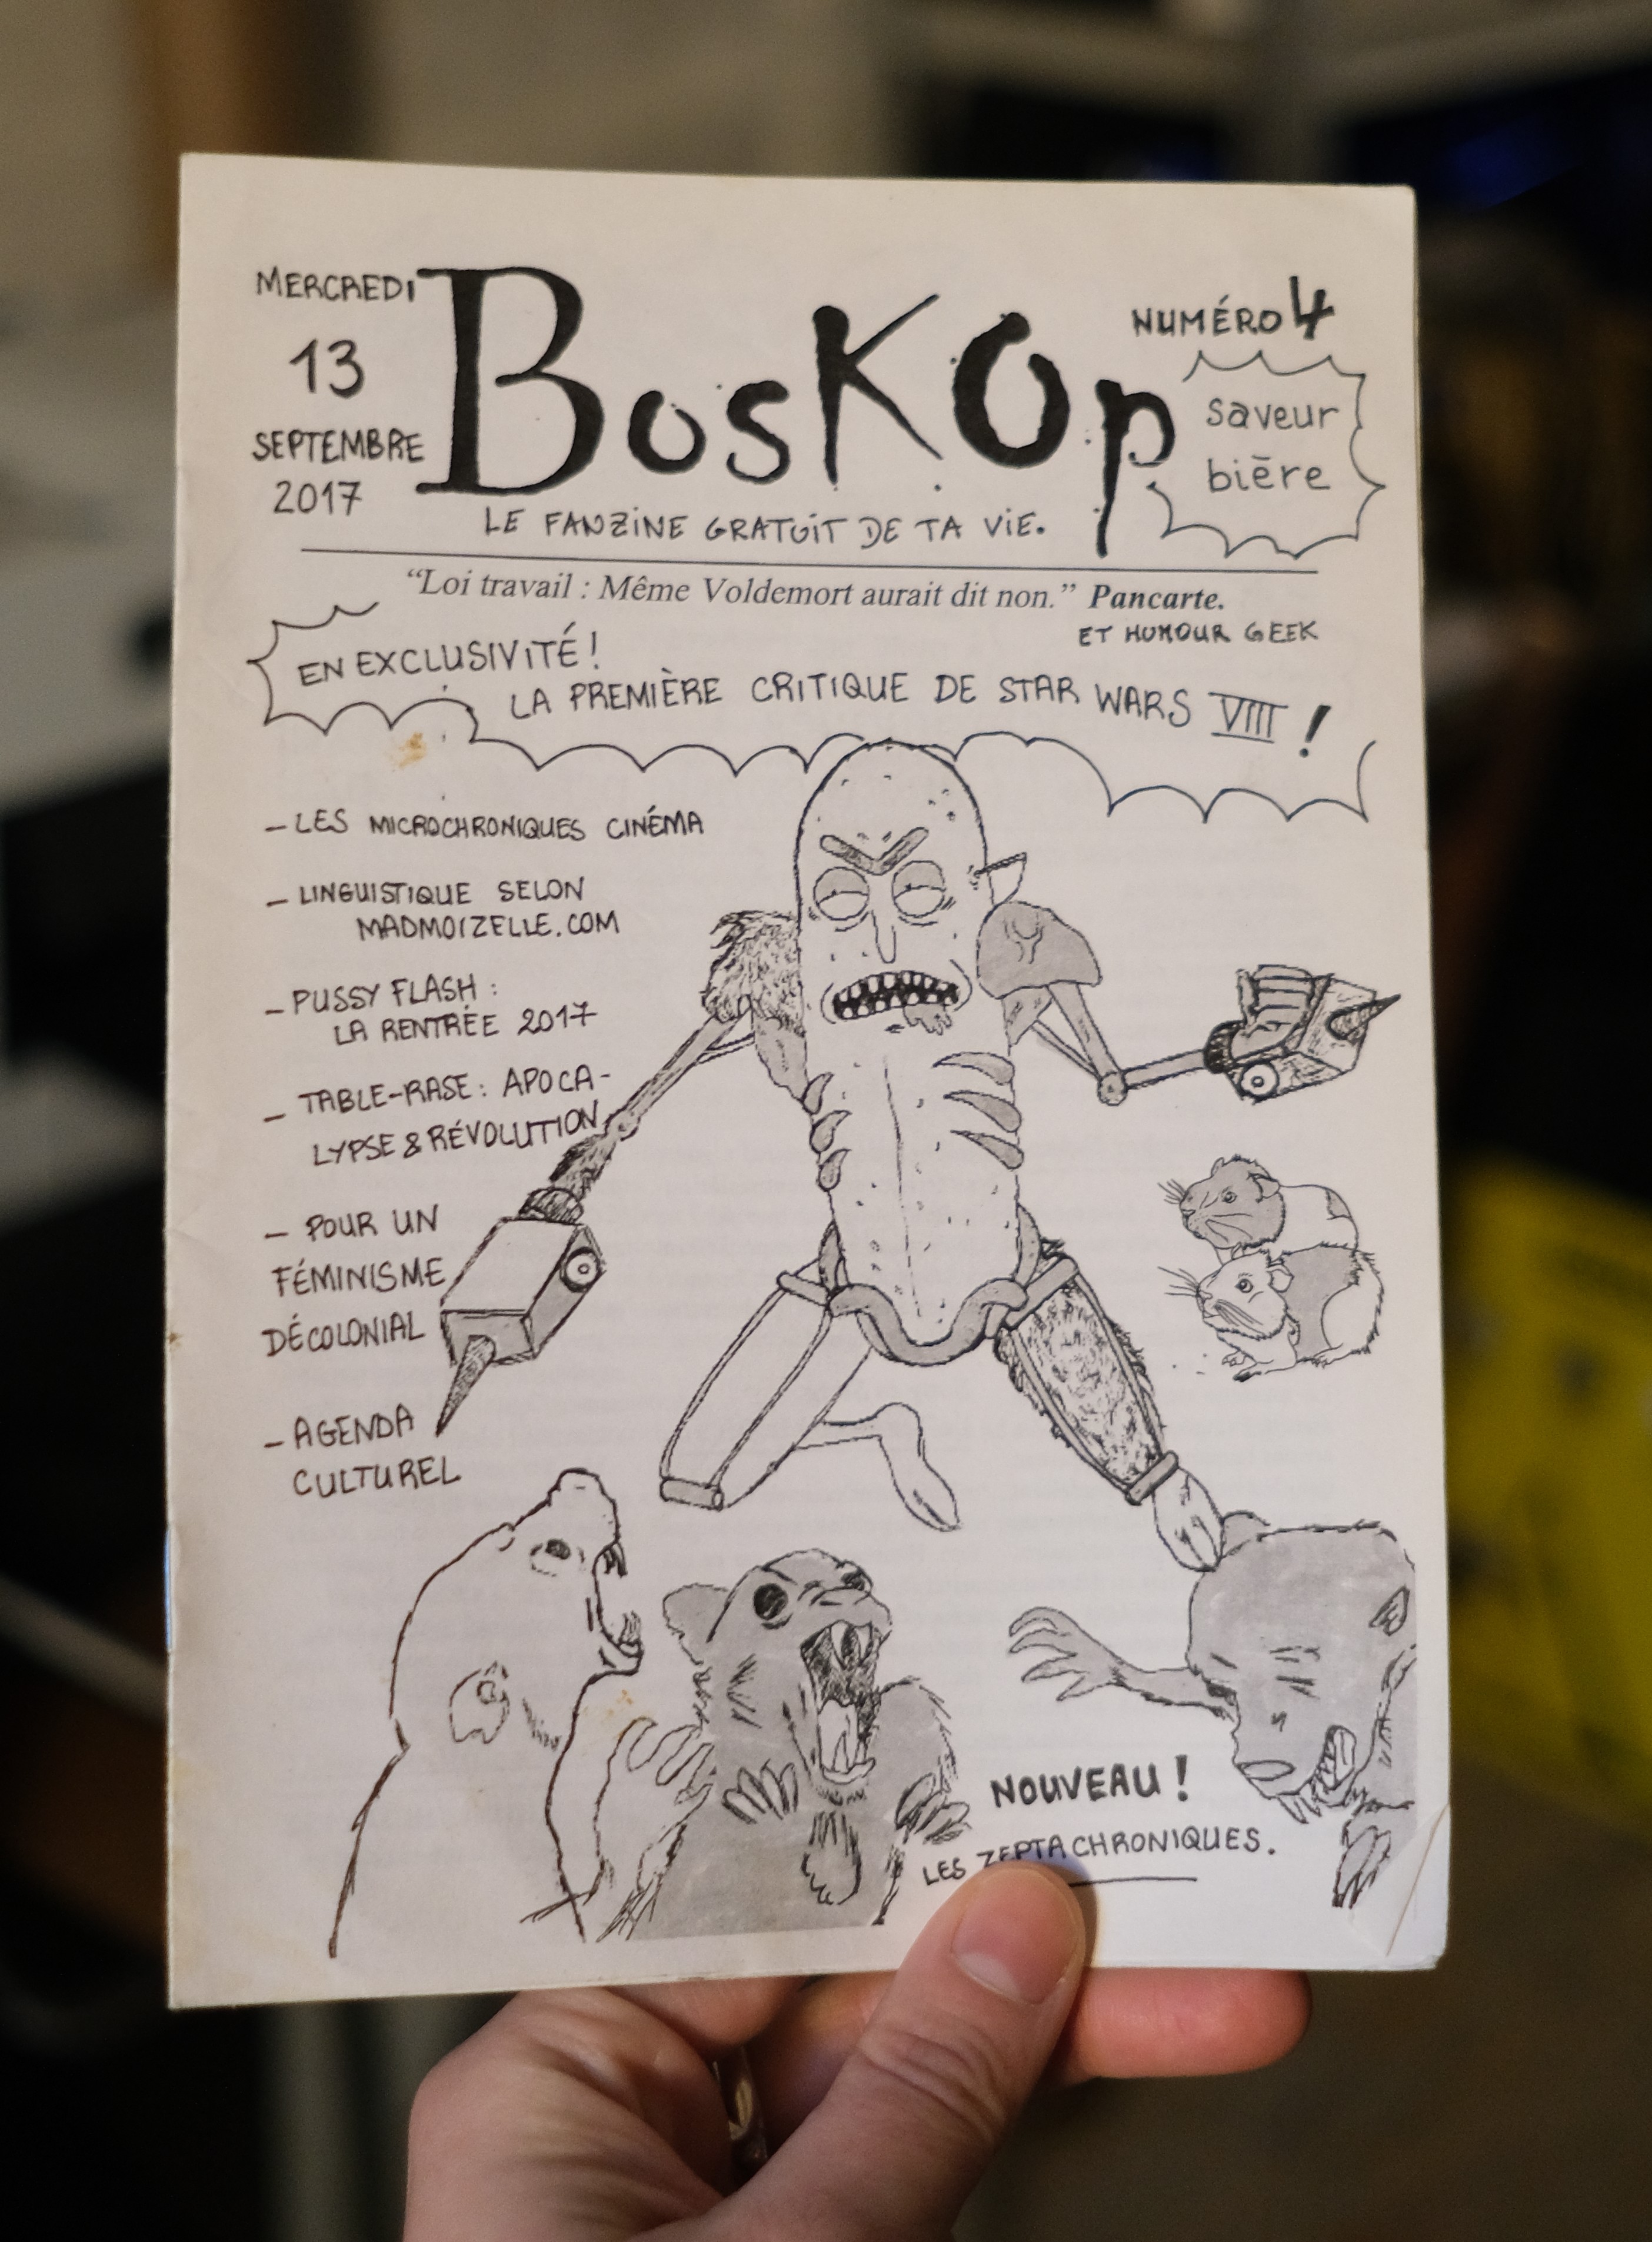 MERCREDI
13
SEPTEMBRE
2017
BosKOp
NUMÉRO 4
saveur
bière
LE FANZINE GRATUIT DE TA VIE.
“Loi travail : Même Voldemort aurait dit non.” Pancarte.
ET HUMOUR GEEK
EN EXCLUSIVITÉ !
LA PREMIÈRE CRITIQUE DE STAR WARS VIII !
– LES MICROCHRONIQUES CINÉMA
– LINGUISTIQUE SELON
MADMOIZELLE.COM
– PUSSY FLASH :
LA RENTRÉE 2017
– TABLE-RASE : APOCA-
LYPSE & RÉVOLUTION
– POUR UN
FÉMINISME
DÉCOLONIAL
– AGENDA
CULTUREL
NOUVEAU !
LES ZEPTACHRONIQUES.